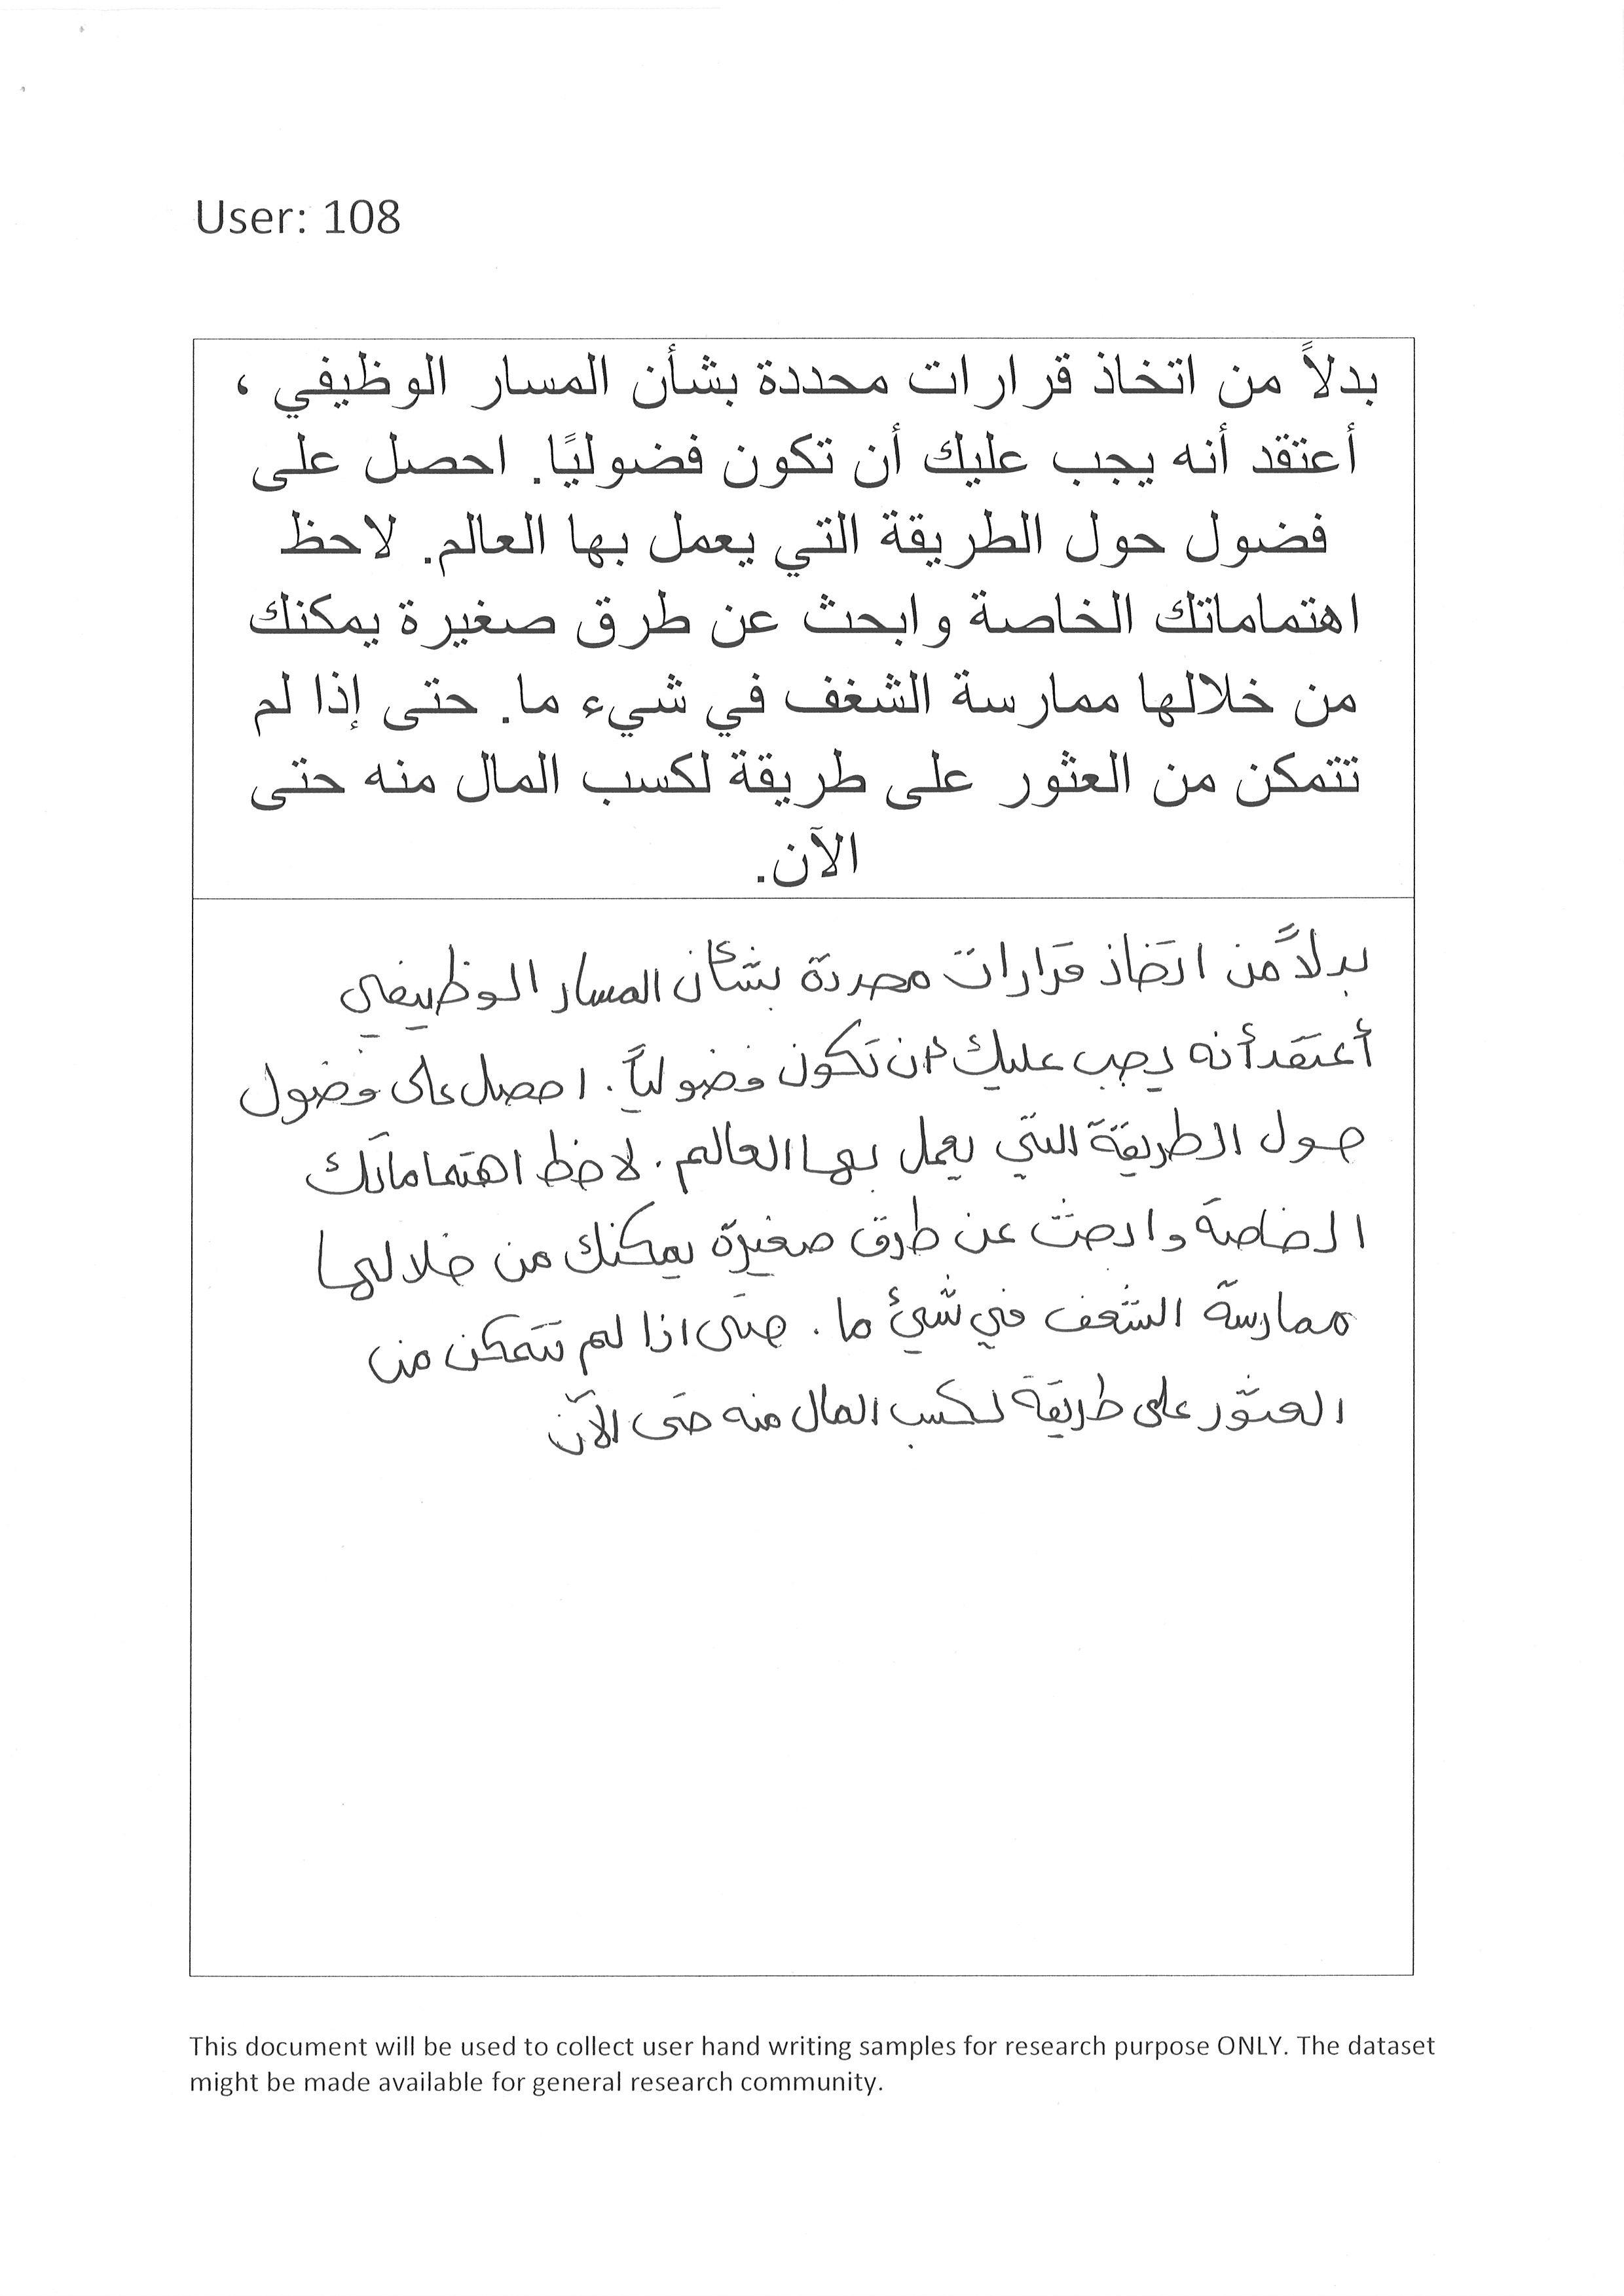 User: 108
بدلاً من اتخاذ قرارات محددة بشأن المسار الوظيفي ،
أعتقد أنه يجب عليك أن تكون فضوليًا. احصل على
فضول حول الطريقة التي يعمل بها العالم. لاحظ
اهتماماتك الخاصة وابحث عن طرق صغيرة يمكنك
من خلالها ممارسة الشغف في شيء ما. حتى إذا لم
تتمكن من العثور على طريقة لكسب المال منه حتى
الآن.
بدلاً من اتخاذ قرارات محددة بشأن المسار الوظيفي
أعتقد أنه يجب عليك أن تكون فضولياً. احصل على فضول
حول الطريقة التي يعمل بها العالم. لاحظ اهتماماتك
الخاصة وابحث عن طرق صغيرة يمكنك من خلالها
ممارسة الشغف في شيئ ما. حتى اذا لم تتمكن من
العثور على طريقة لكسب المال منه حتى الآن
This document will be used to collect user hand writing samples for research purpose ONLY. The dataset
might be made available for general research community.